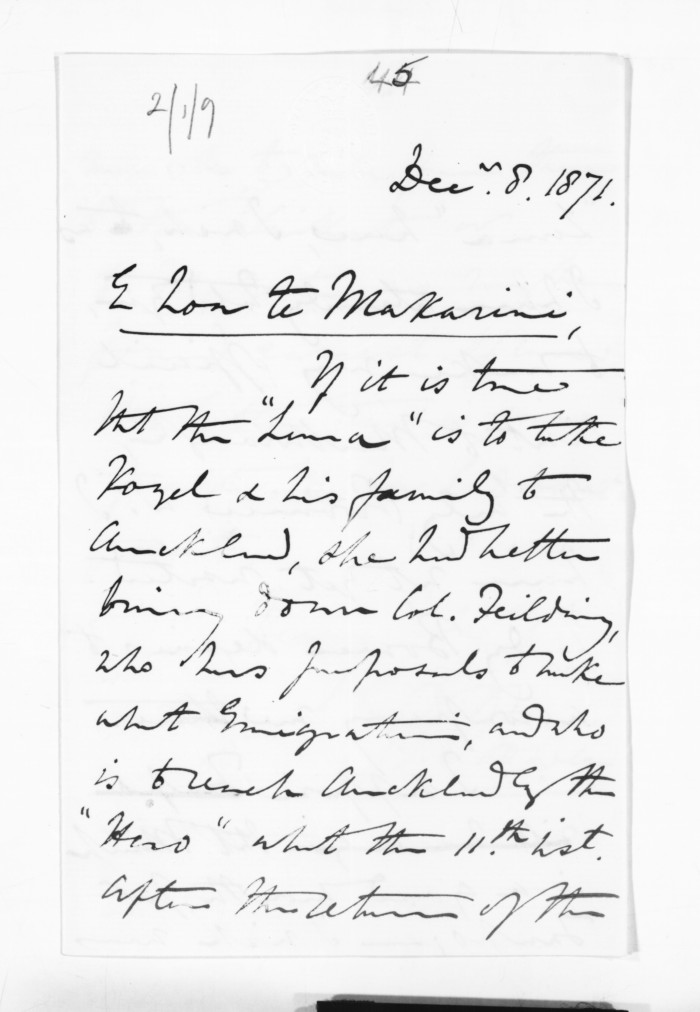 45
2/1/9
Decr. 8. 1871.
E hoa te Makarini,
If it is true
that the "Luna" is to take
Vogel & his family to
Auckland, she had better
bring down Col. Feilding,
who has proposals to make
about Emigration, and who
is to reach Auckland by the
"Hero" about the 11.th inst.
After the return of the